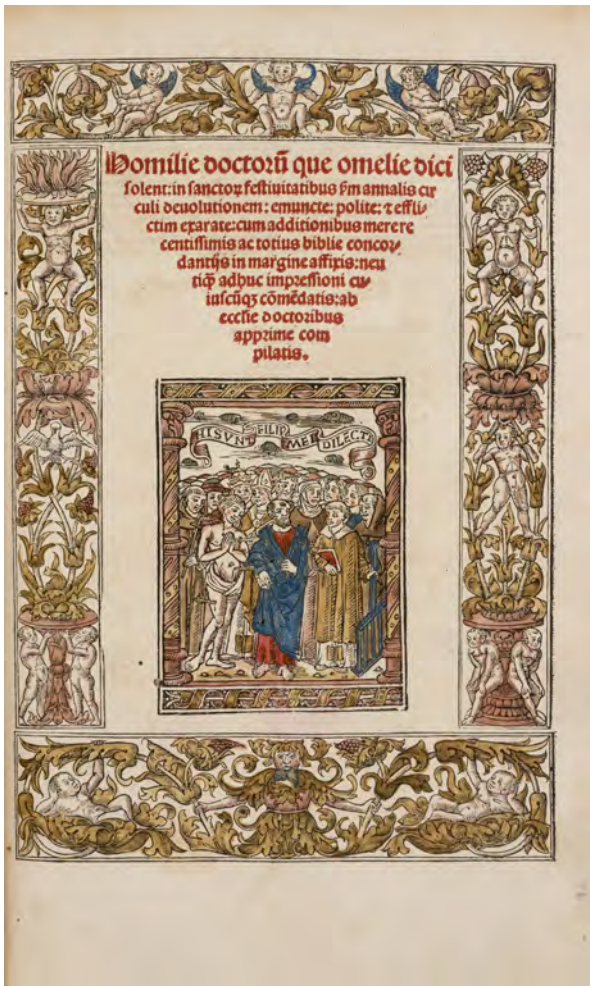 Homilie doctorū que omelie dici
solent:in sanctoꝝ festiuitatibus ẜm annalis cir
culi deuolutionem: emuncte: polite: ⁊ effli-
ctim exarate:cum additionibus merere
centissimis ac totius biblie concor-
dantijs in margine affixis:neu
tiꝙ adhuc impressioni cu-
iuscūqꝫ cōmēdatis:ab
ecclīe doctoribus
apprime com
pilatis.
HI SVNT FILII MEI DILECTI